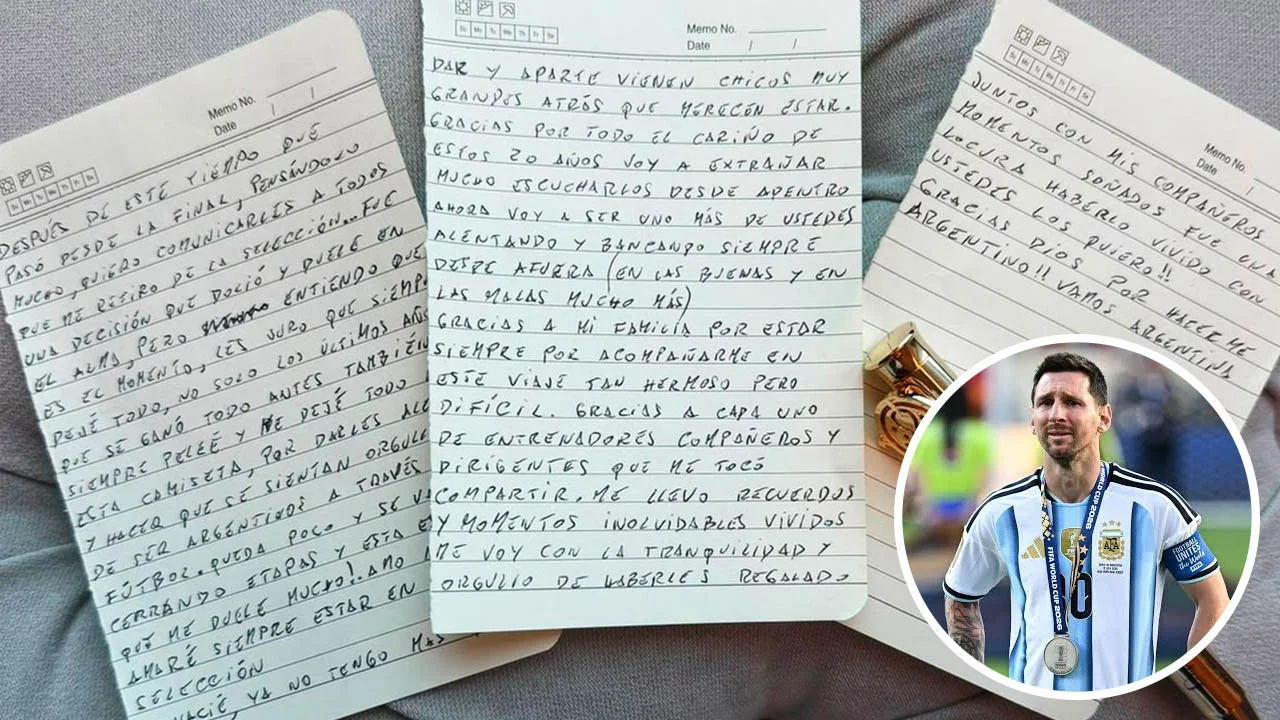 Memo No.
Date / /
Su Mo Tu We Th Fr Sa
DESPUÉS DE ESTE TIEMPO QUE
PASÓ DESDE LA FINAL, PENSÁNDOLO
MUCHO, QUIERO COMUNICARLES A TODOS
QUE ME RETIRO DE LA SELECCIÓN... FUE
UNA DECISIÓN QUE DOLIÓ Y DUELE EN
EL ALMA, PERO ENTIENDO QUE
ES EL MOMENTO, LES JURO QUE SIEMP
DEJÉ TODO, NO SOLO LOS ÚLTIMOS AÑOS
QUE SE GANÓ TODO ANTES TAMBIÉN
SIEMPRE PELEÉ Y ME DEJÉ TODO
ESTA CAMISETA, POR DARLES ALE
Y HACER QUE SE SIENTAN ORGULL
DE SER ARGENTINOS A TRAVÉS
FÚTBOL. QUEDA POCO Y SE V
CERRANDO ETAPAS Y ESTA E
QUÉ ME DUELE MUCHO!! AMO
AMARÉ SIEMPRE ESTAR EN
SELECCIÓN
VACIÉ, YA NO TENGO MÁS
Memo No.
Date / /
Su Mo Tu We Th Fr Sa
DAR Y APARTE VIENEN CHICOS MUY
GRANDES ATRÁS QUE MERECEN ESTAR.
GRACIAS POR TODO EL CARIÑO DE
ESTOS 20 AÑOS VOY A EXTRAÑAR
MUCHO ESCUCHARLOS DESDE ADENTRO
AHORA VOY A SER UNO MÁS DE USTEDES
ALENTANDO Y BANCANDO SIEMPRE
DESDE AFUERA (EN LAS BUENAS Y EN
LAS MALAS MUCHO MÁS)
GRACIAS A MI FAMILIA POR ESTAR
SIEMPRE POR ACOMPAÑARME EN
ESTE VIAJE TAN HERMOSO PERO
DIFÍCIL. GRACIAS A CADA UNO
DE ENTRENADORES COMPAÑEROS Y
DIRIGENTES QUE ME TOCÓ
COMPARTIR. ME LLEVO RECUERDOS
Y MOMENTOS INOLVIDABLES VIVIDOS
ME VOY CON LA TRANQUILIDAD Y
ORGULLO DE HABERLES REGALADO
Memo No.
Date /
Su Mo Tu We Th Fr Sa
JUNTOS CON MIS COMPAÑEROS
MOMENTOS SOÑADOS FUE UNA
LOCURA HABERLO VIVIDO CON
USTEDES LOS QUIERO!!
GRACIAS DIOS POR HACERME
ARGENTINO!! VAMOS ARGENTINA
FIFA WORLD CUP 2026
WORLD CUP 2026
AFA
FOOTBALL
UNITES
the World